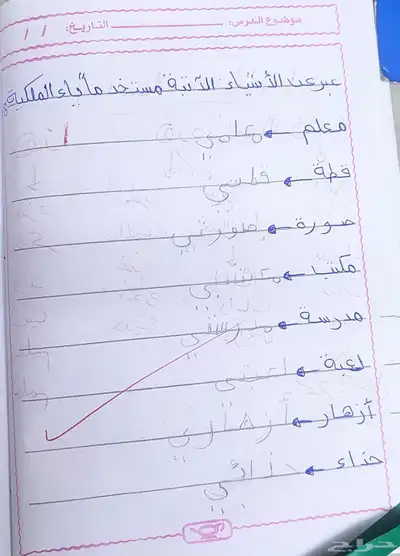 موضوع الدرس: التاريخ: / /
عبر عن الأشياء الآتية مستخدما ياء الملكية
معلم ← معلمي
قطة ← قطتي
صورة ← صورتي
مكتب ← مكتبي
مدرسة ← مدرستي
لعبة ← لعبتي
أزهار ← أزهاري
حذاء ← حذائي
حراج